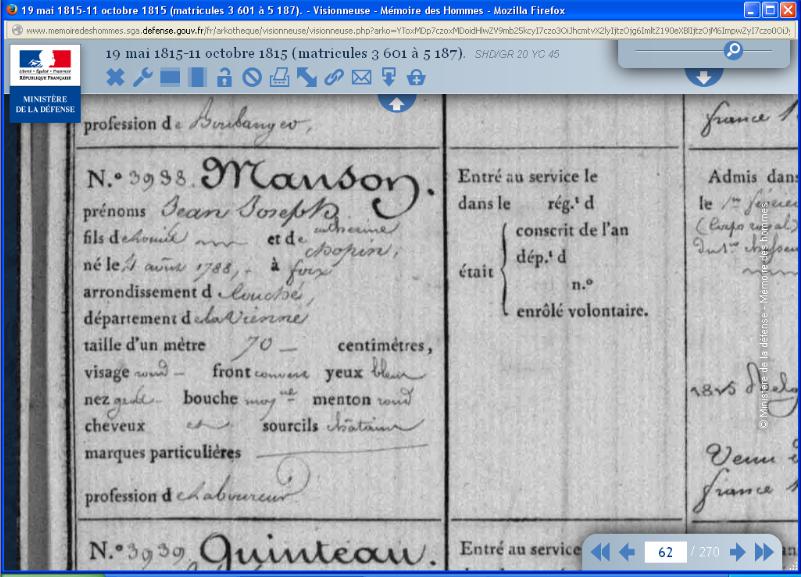 19 mai 1815-11 octobre 1815 (matricules 3 601 à 5 187). - Visionneuse - Mémoire des Hommes - Mozilla Firefox
www.memoiredeshommes.sga.defense.gouv.fr/fr/arkotheque/visionneuse/visionneuse.php?arko=
19 mai 1815-11 octobre 1815 (matricules 3 601 à 5 187). SHD/GR 20 YC 45
Liberté • Égalité • Fraternité
RÉPUBLIQUE FRANÇAISE
MINISTÈRE
DE LA DÉFENSE
profession de Boulanger,
france
N.º 3938. Manson.
prénoms Jean Joseph
fils de et de catherine
chopin,
né le 1788, à
arrondissement d
département de la Vienne
taille d'un mètre 70 centimètres,
visage rond front yeux bleus
nez bouche moyne menton rond
cheveux et sourcils châtains
marques particulières
profession de laboureur
Entré au service le
dans le rég.t d
conscrit de l'an
dép.t d
était
n.º
enrôlé volontaire.
Admis dans
le
(Corps royal)
1815
Venu
france
© Ministère de la défense - Mémoire des hommes
N.º 3939. Quinteau.
Entré au service
62 / 270